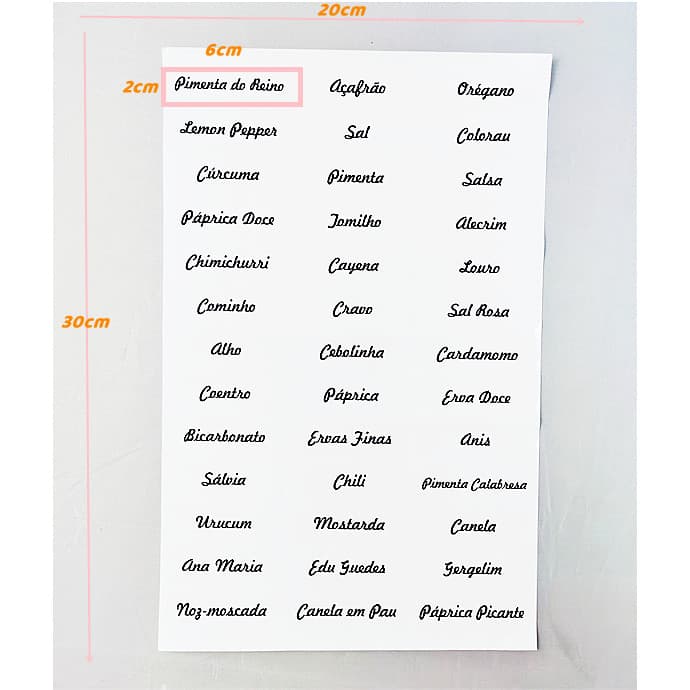 20cm
6cm
2cm
30cm
Pimenta do Reino Açafrão Orégano
Lemon Pepper Sal Colorau
Cúrcuma Pimenta Salsa
Páprica Doce Tomilho Alecrim
Chimichurri Cayena Louro
Cominho Cravo Sal Rosa
Alho Cebolinha Cardamomo
Coentro Páprica Erva Doce
Bicarbonato Ervas Finas Anis
Sálvia Chili Pimenta Calabresa
Urucum Mostarda Canela
Ana Maria Edu Guedes Gergelim
Noz-moscada Canela em Pau Páprica Picante